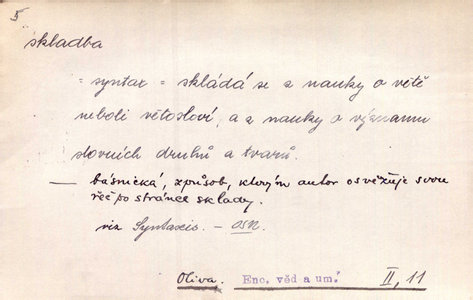 5
skladba
= syntax = skládá se z nauky o větě
neboli větosloví, a z nauky o významu
slovních druhů a tvarů.
— básnická, způsob, kterým autor osvěžuje svou
řeč po stránce sklady.
viz Syntaxis. – OSN.
Oliva. Enc. věd a um. II, 11